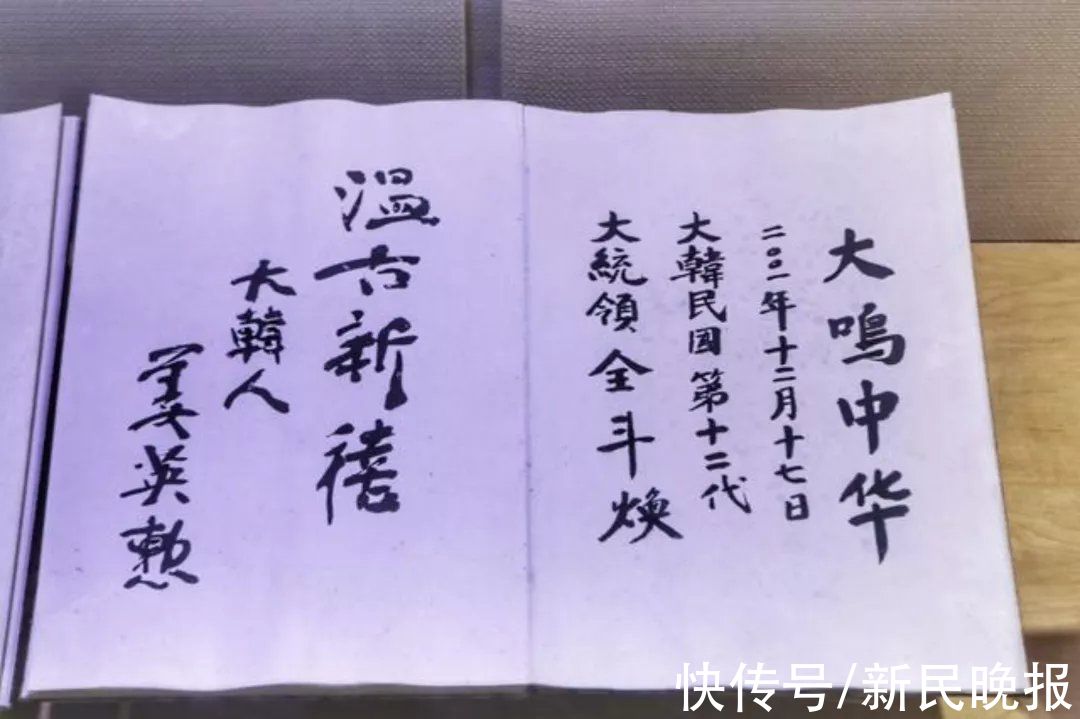 大鳴中华
二〇〇一年十二月十七日
大韓民國第十二代
大統領全斗煥
温古新禧
大韓人
姜英勲
快传号/新民晚报